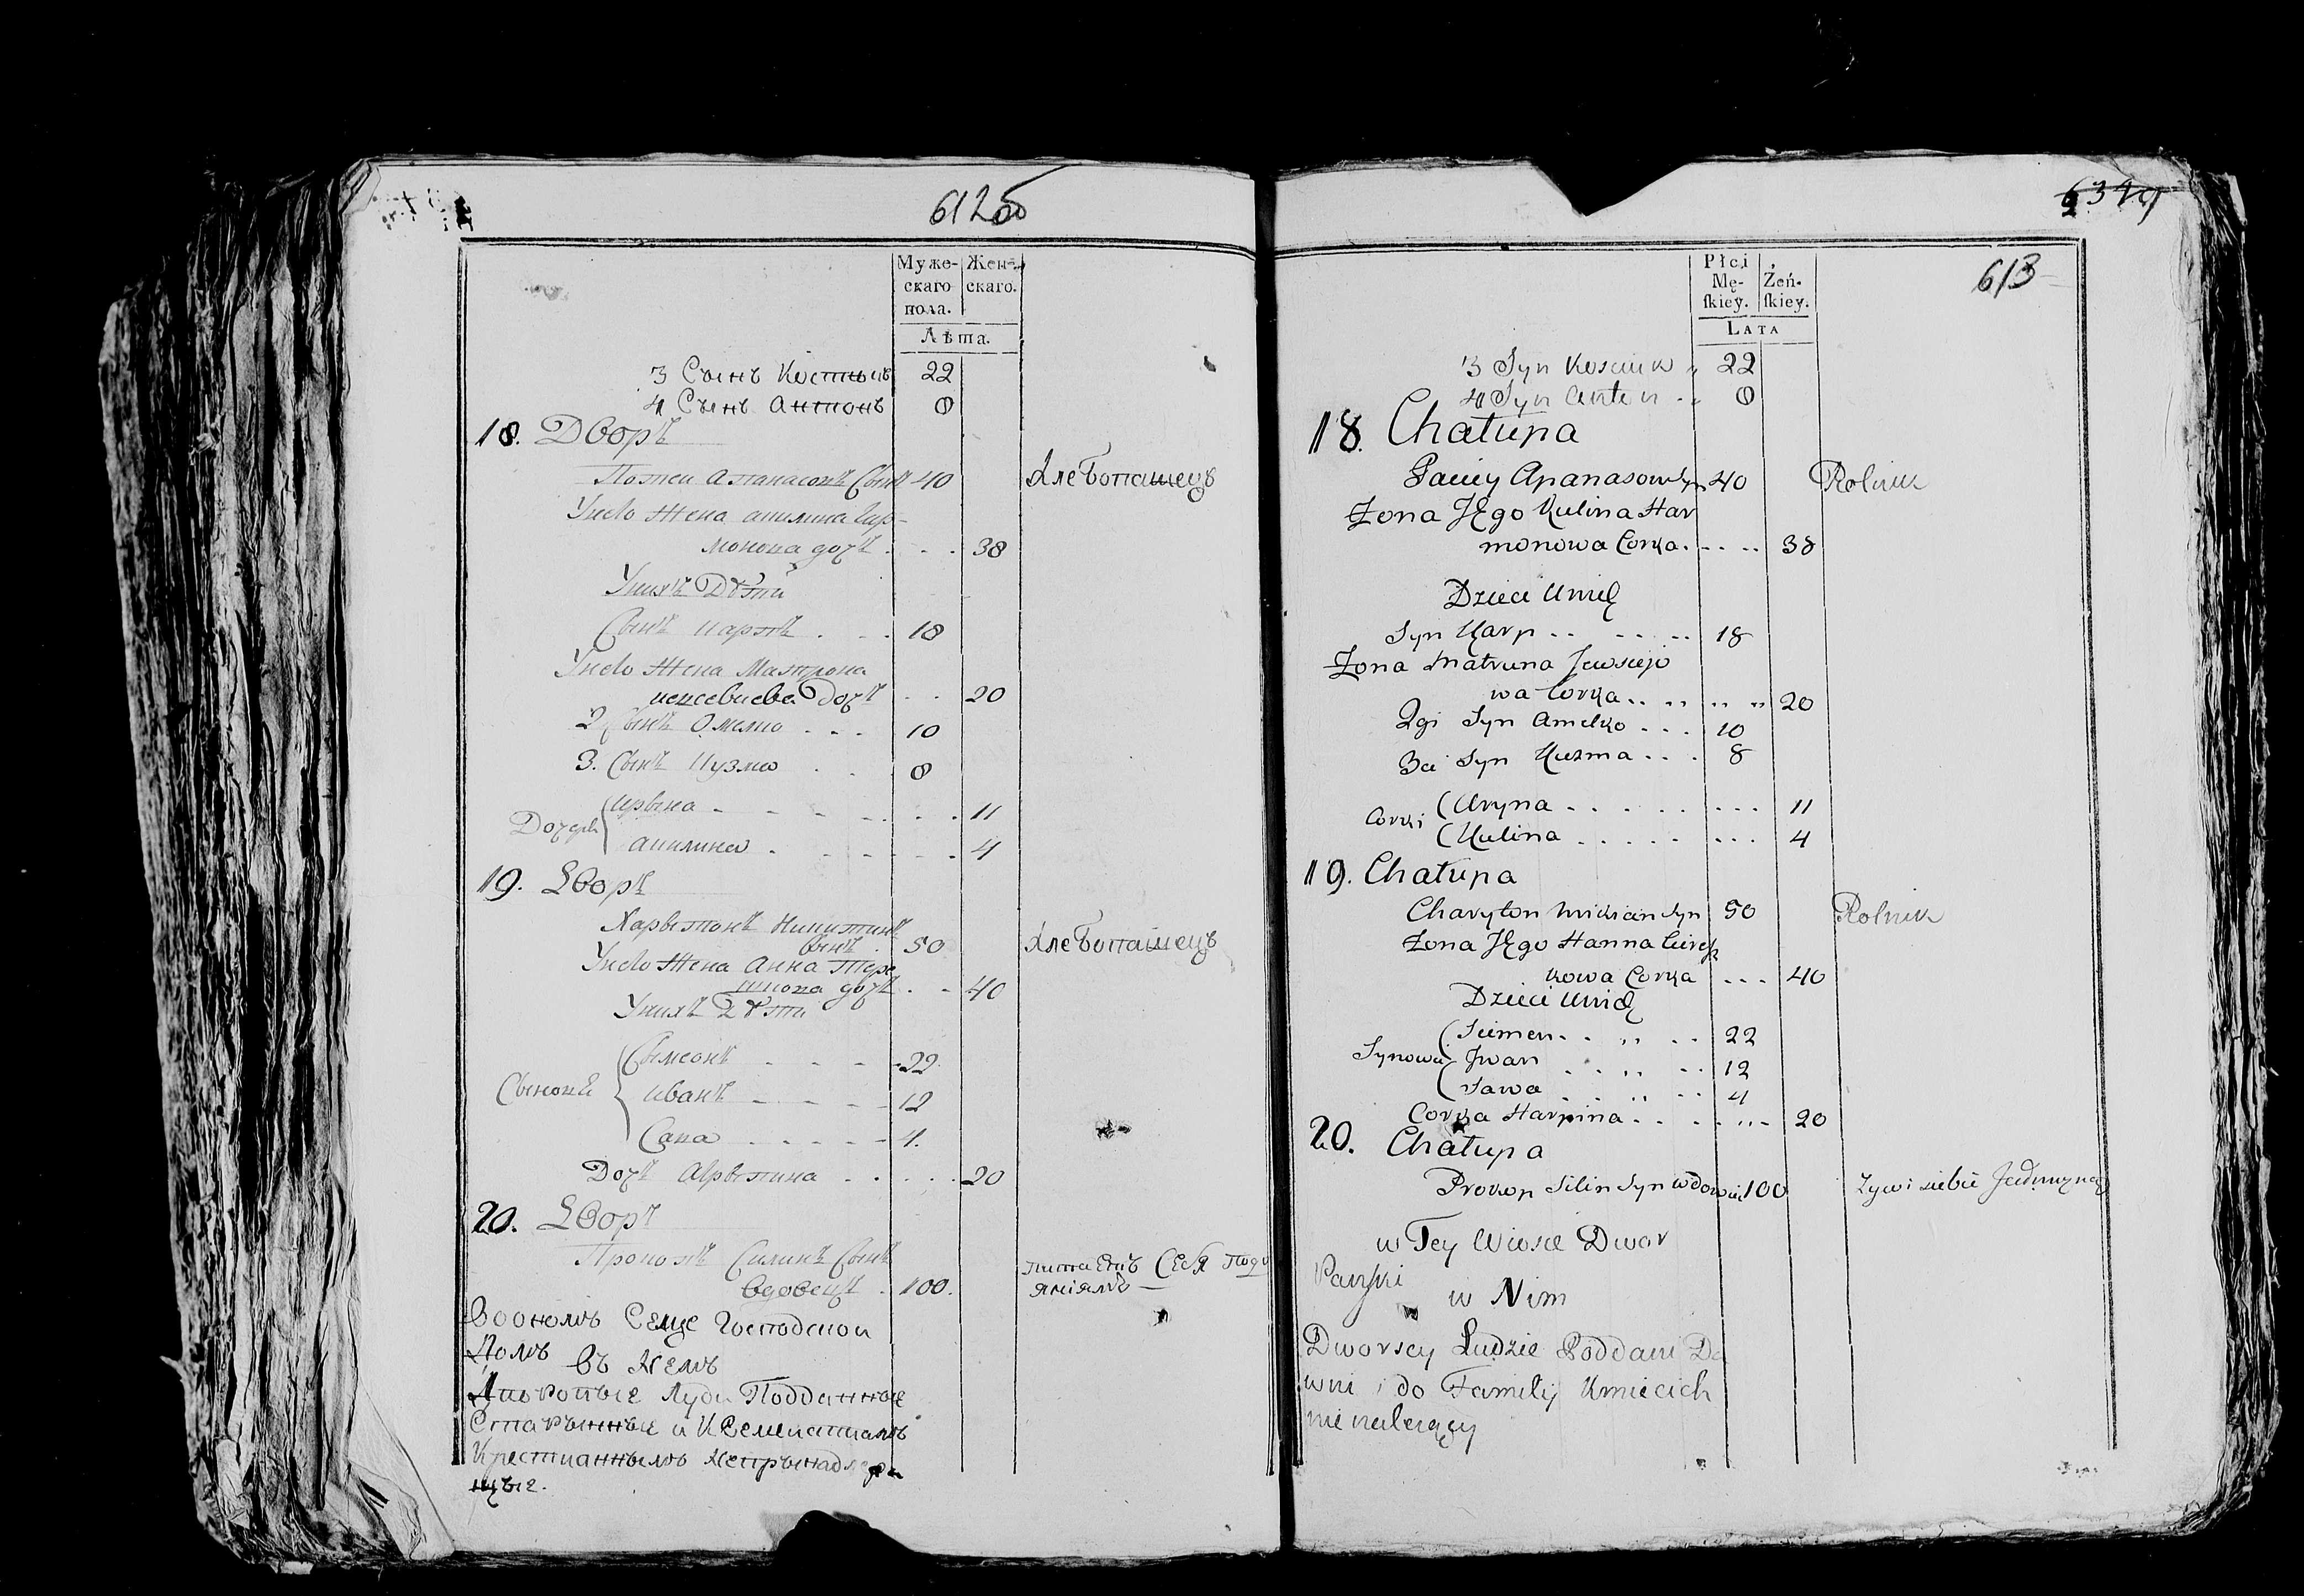 612об
Муже-
скаго
пола.
Жен-
скаго.
Лѣта.
3 Сынъ Костюкъ 22
4 Сынъ Антонъ 8
18. Дворъ
Потеи Апанасовъ Сынъ 40 Хлебопашецъ
У него Жена Акилина Гар-
монова дочь . . . 38
У нихъ Дѣти
Сынъ Карпъ . . . 18
У него Жена Матрона
иевсеиева Дочь . . 20
2 Сынъ Омелко . . . 10
3. Сынъ Кузма . . 8
Дочери Ирына - - - - 11
Акилина . - - - - 4
19. Дворъ
Харытонъ Никитинъ
Сынъ . 50 Хлебопашецъ
У него Жена Анна Тере
шкова дочь . - 40
У нихъ Дѣти
Сыновѣ Сымеонъ - - - - 22
Иванъ - - - - 12
Сава - - - - - 4.
Дочь Агрыпина . . . . 20
20. Дворъ
Прокопъ Силинъ Сынъ
вдовецъ . 100. питаетъ Себя Пода
яніямъ —
Во ономъ Селце Господскои
Домъ въ Немъ
Дворовые Люди Подданные
Старынные и К Семеиствамъ
Крестианнымъ Непрынадлежа
щые.
613
Płci
Mę-
ſkiey.
Żeń-
ſkiey.
LATA
3 Syn Kosciuk 22
4 Syn Anton 8
18. Chałupa
Paciey Apanasow Syn 40 Rolnik
Zona JEgo Kulina Har
monowa Corka . . . . 38
Dzieci Unich
Syn Karp . . . . . 18
Zona Matruna Jewsiejo
wa Corka . . . . . . 20
2gi Syn Amelko . . . 10
3ci Syn Kuzma . . . 8
Corki Aryna . . . . . . . . 11
Kulina . . . . . . . . 4
19. Chałupa
Charyton Mikicin Syn 50 Rolnik
Zona JEgo Hanna Ciresz
kowa Corka . . . 40
Dzieci Unich
Synowie Siemen . . . . . 22
Jwan . . . . . 12
Sawa . . . . . 4
Corka Harpina . . . . . . . 20
20. Chałupa
Prokop Silin Syn wdowiec 100 Zywi siebie Jałmużną
w Tey Wiosce Dwor
Pański w Nim
Dworscy Ludzie Poddani Da
wni i do Familij Kmiecich
nie należący